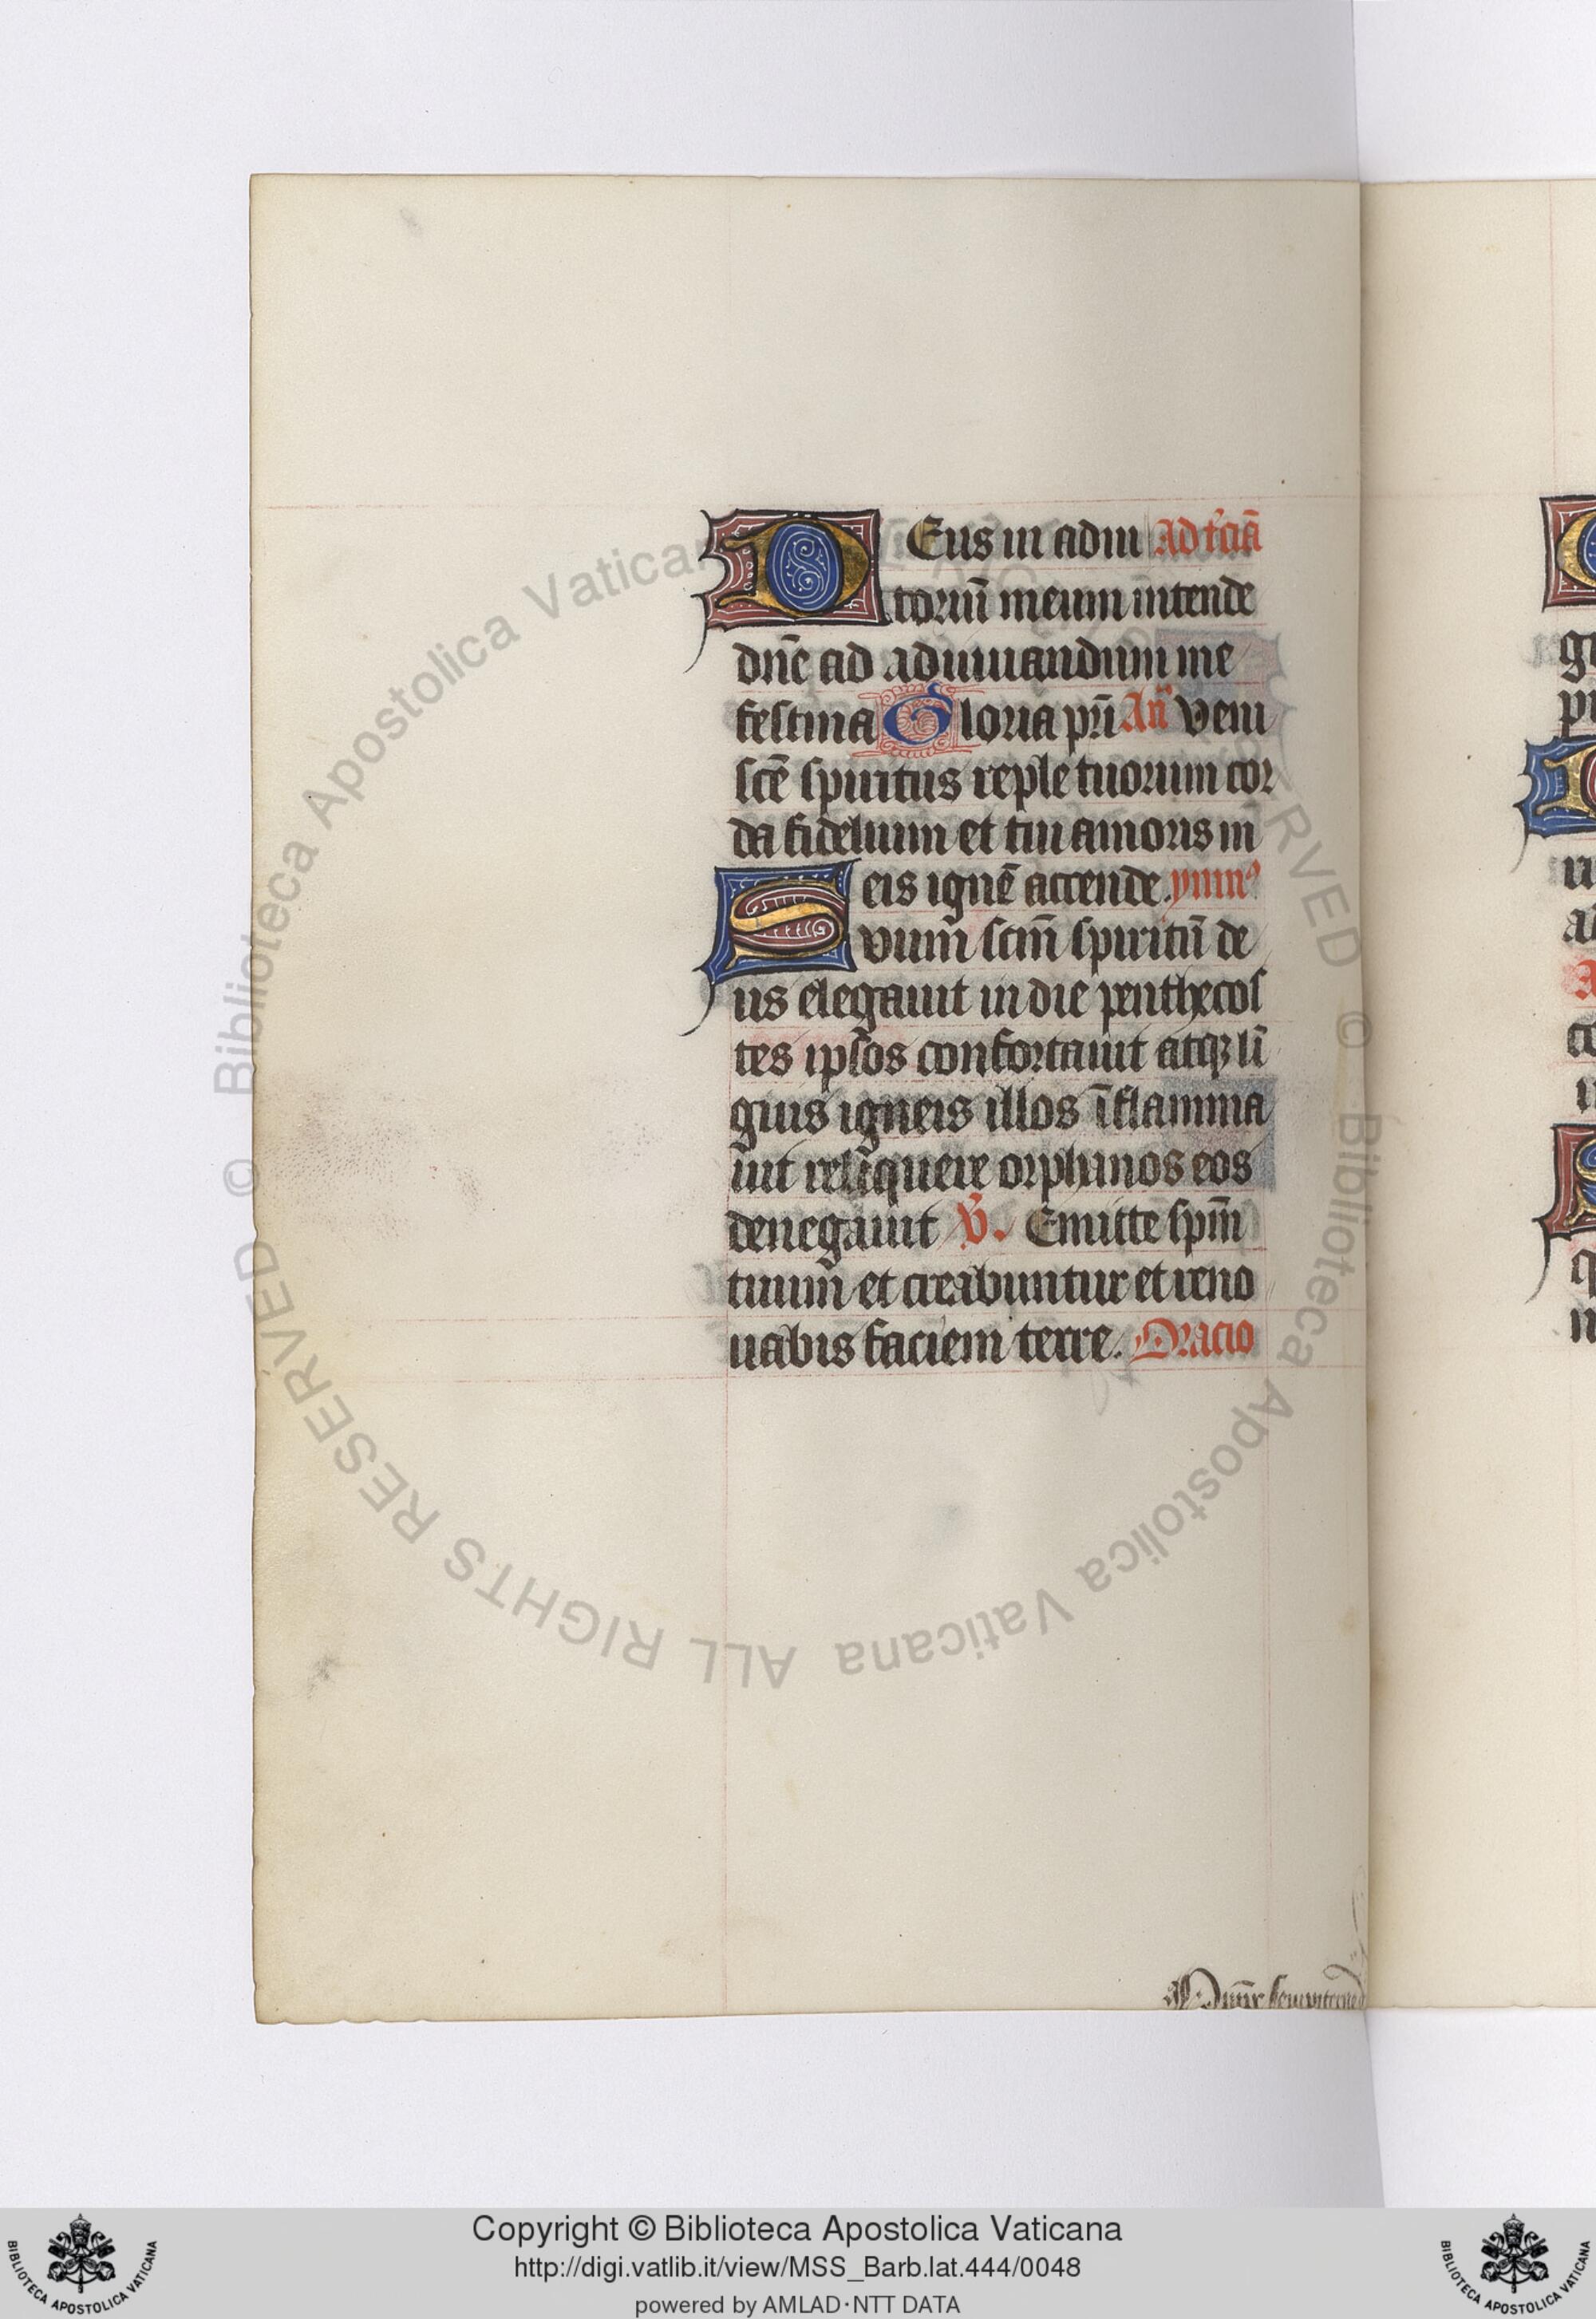 Deus in adiu Ad t'ciā
toriū meum intende
dn̄e ad adiuuandum me
festina Gloria pr̄i An̄ Veni
sc̄e spiritus reple tuorum cor
da fidelium et tui amoris in
eis ignē accende. ymn⁹
Suum sc̄m spiritū de
us elegauit in die penthecos
tes ip̄sos confortauit atqꝫ lī
guis igneis illos īflamma
uit relīquere orphanos eos
denegauit V̄. Emitte sp̄m
tuum et creabuntur et reno
uabis faciem terre. Oracio
© Biblioteca Apostolica Vaticana ALL RIGHTS RESERVED
Copyright © Biblioteca Apostolica Vaticana
http://digi.vatlib.it/view/MSS_Barb.lat.444/0048
powered by AMLAD·NTT DATA
BIBLIOTECA APOSTOLICA VATICANA
BIBLIOTECA APOSTOLICA VATICANA